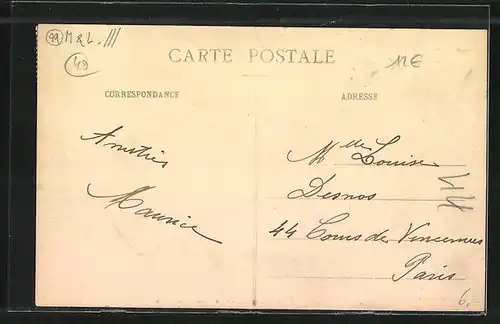 99 M & L. ///
49
CARTE POSTALE
12€
CORRESPONDANCE
ADRESSE
Amitiés
Maurice
Mlle Louise
Desnos
44 Cours de Vincennes
Paris
44
6,-